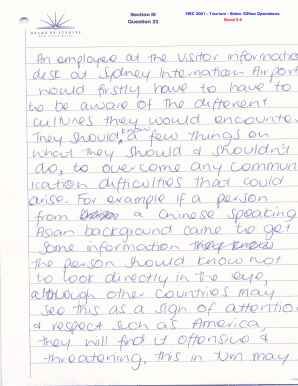 BOARD OF STUDIES
NEW SOUTH WALES
Section III
Question 23
HSC 2001 - Tourism - Sales /Office Operations
Band 5-6
An employee at the visitor information
desk at Sydney International Airport
would firstly have to have to
to be aware of the different
cultures they would encounter.
They should know a few things on
what they should & shouldn't
do, to overcome any commun-
ication difficulties that could
arise. For example if a person
from a Chinese speaking
Asian background came to get
some information they know
the person should know not
to look directly in the eye,
although other countries may
see this as a sign of attention
& respect such as America,
they will find it offensive &
threatening, this in turn may